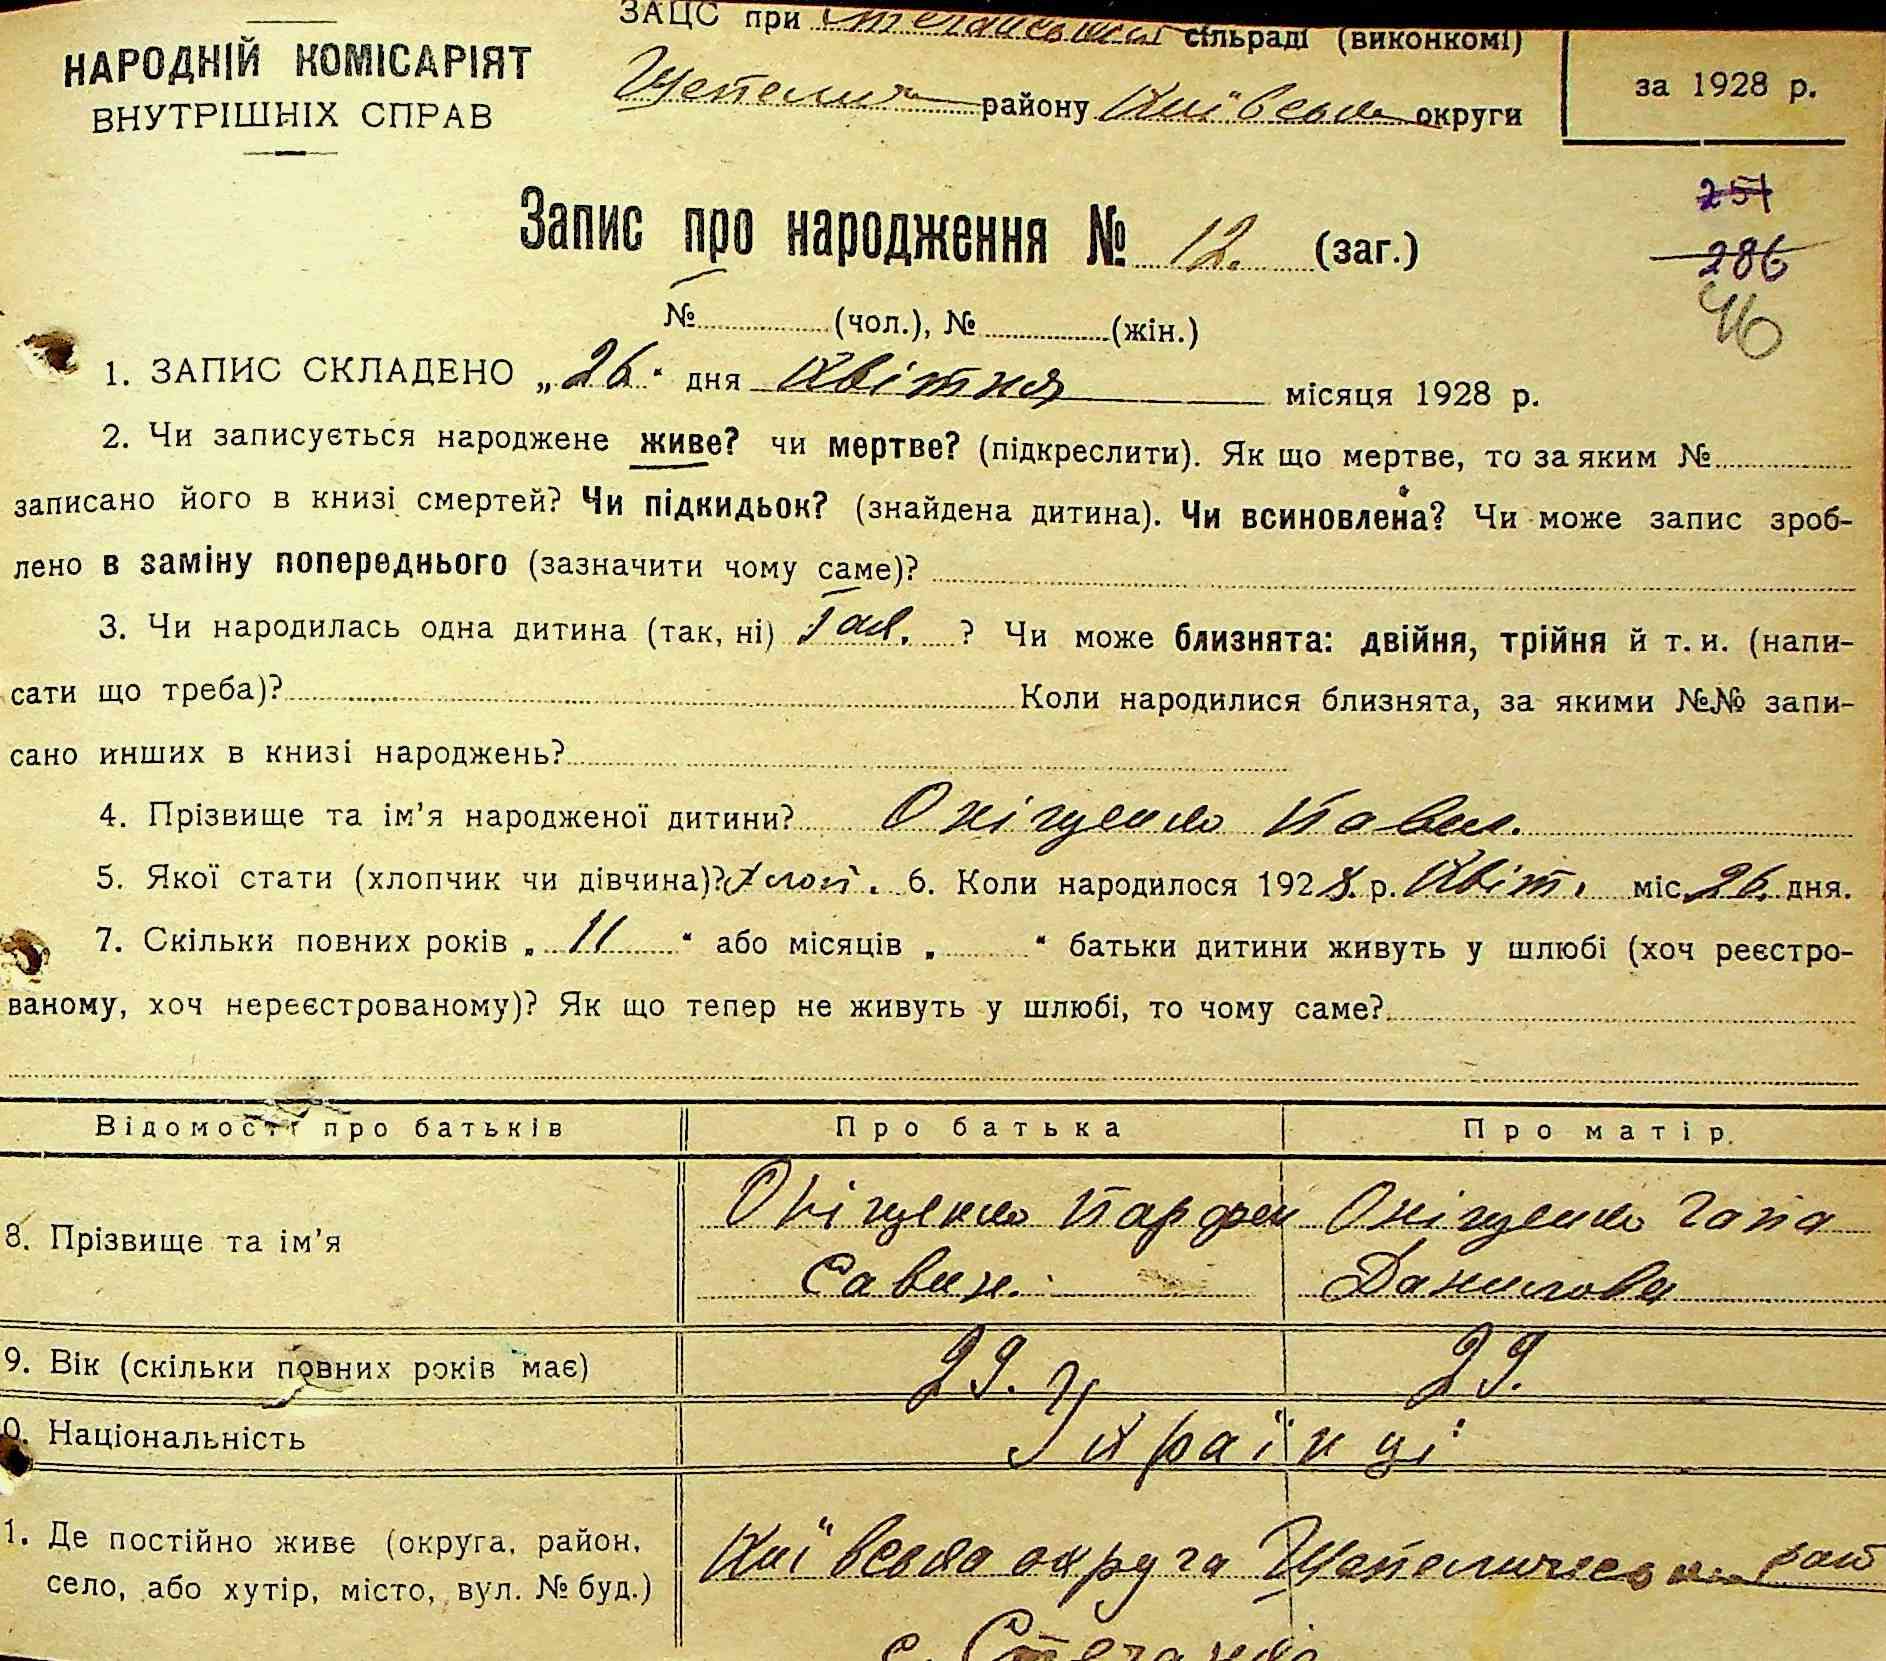 ЗАЦС при Стечанській сільраді (виконкомі)
НАРОДНІЙ КОМІСАРІЯТ
ВНУТРІШНІХ СПРАВ
району Київсько округи
за 1928 р.
Запис про народження № 12. (заг.)
251
286
46
№ (чол.), № (жін.)
1. ЗАПИС СКЛАДЕНО „26" дня Квітня місяця 1928 р.
2. Чи записується народжене живе? чи мертве? (підкреслити). Як що мертве, то за яким №
записано його в книзі смертей? Чи підкидьок? (знайдена дитина). Чи всиновлена? Чи може запис зроб-
лено в заміну попереднього (зазначити чому саме)?
3. Чи народилась одна дитина (так, ні) Так. ? Чи може близнята: двійня, трійня й т. и. (напи-
сати що треба)? Коли народилися близнята, за якими №№ запи-
сано инших в книзі народжень?
4. Прізвище та ім'я народженої дитини? Оніщенко Павел.
5. Якої стати (хлопчик чи дівчина)? хлоп. 6. Коли народилося 1928. р. Квіт. міс. 26. дня.
7. Скільки повних років „ 11 " або місяців „ " батьки дитини живуть у шлюбі (хоч реєстро-
ваному, хоч нереєстрованому)? Як що тепер не живуть у шлюбі, то чому саме?
Відомості про батьків Про батька Про матір.
8. Прізвище та ім'я
Оніщенко Парфен
Савин.
Оніщенко Гапа
Данилова
9. Вік (скільки повних років має) 29. 29.
0. Національність Українці
1. Де постійно живе (округа, район,
село, або хутір, місто, вул. № буд.)
Київська округа Шепелическ рай
с. Стечанці